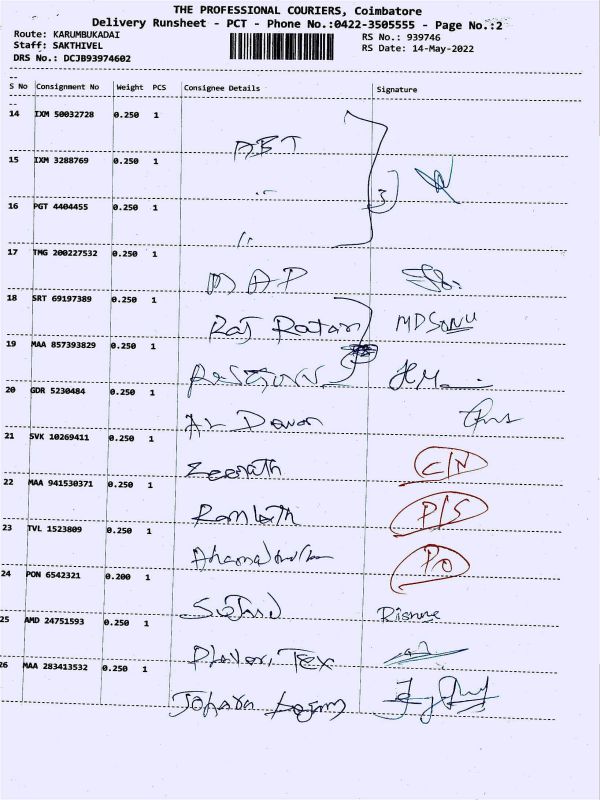 THE PROFESSIONAL COURIERS, Coimbatore
Delivery Runsheet - PCT - Phone No.:0422-3505555 - Page No.:2
Route: KARUMBUKADAI
Staff: SAKTHIVEL
DRS No.: DCJB93974602
RS No.: 939746
RS Date: 14-May-2022
S No Consignment No Weight PCS Consignee Details Signature
14 IXM 50032728 0.250 1 ABT
15 IXM 3288769 0.250 1 3
16 PGT 4404455 0.250 1
17 TMG 200227532 0.250 1 MAP
18 SRT 69197389 0.250 1 Raj Ratan MD SONU
19 MAA 857393829 0.250 1
20 GDR 5230484 0.250 1
21 SVK 10269411 0.250 1 Zeenath C/N
22 MAA 941530371 0.250 1 Ramlath P/S
23 TVL 1523809 0.250 1 PO
24 PON 6542321 0.200 1
25 AMD 24751593 0.250 1 Tex
26 MAA 283413532 0.250 1